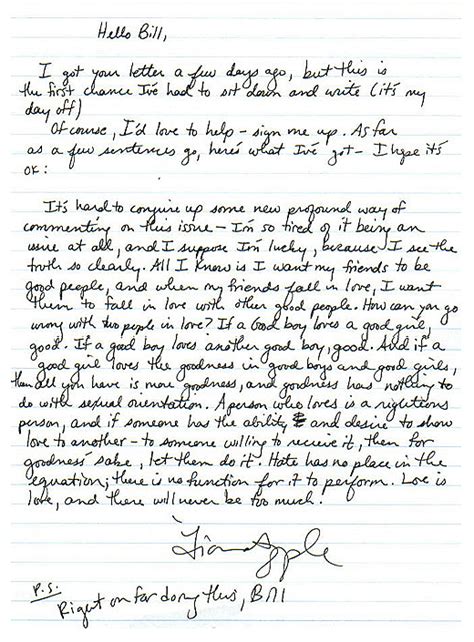 Hello Bill,
I got your letter a few days ago, but this is
the first chance I've had to sit down and write (it's my
day off)
Of course, I'd love to help - sign me up. As far
as a few sentences go, here's what I've got - I hope it's
OK:
It's hard to conjure up some new profound way of
commenting on this issue - I'm so tired of it being an
issue at all, and I suppose I'm lucky, because I see the
truth so clearly. All I know is I want my friends to be
good people, and when my friends fall in love, I want
them to fall in love with other good people. How can you go
wrong with two people in love? If a Good boy loves a good girl,
good. If a good boy loves another good boy, good. And if a
good girl loves the goodness in good boys and good girls,
then all you have is more goodness, and goodness has nothing to
do with sexual orientation. A person who loves is a righteous
person, and if someone has the ability and desire to show
love to another - to someone willing to receive it, then for
goodness' sake, let them do it. Hate has no place in the
equation; there is no function for it to perform. Love is
love, and there will never be too much.
Fiona Apple
P.S.
Right on for doing this, Bill